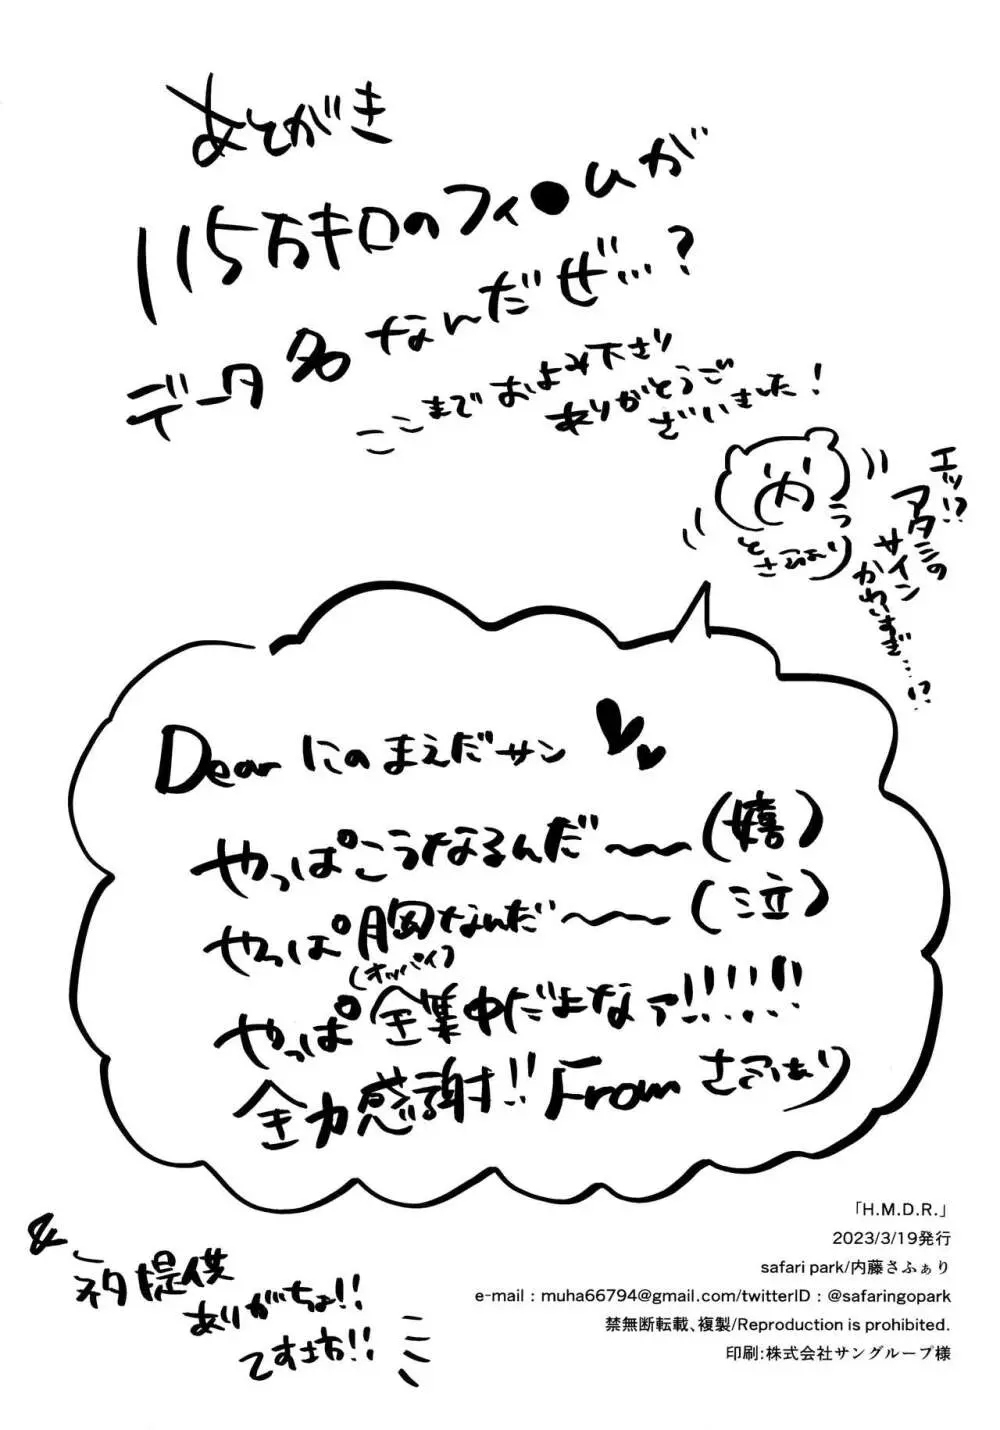 あとがき
115万キロのフィ●ムが
データ名なんだぜ…?
ここまでおよみ下さり
ありがとうご
ざいました!
エッ!?
アタシの
サイン
かわいすぎ…!?
さふぁり
Dear にのまえだサン
やっぱこうなるんだ〜〜(嬉)
やっぱ胸なんだ〜〜(泣)
(オッパイ)
やっぱ全集中だよなァ!!!!!
全力感謝!! From さふぁり
&
ネタ提供
ありがちょ!!
てすと坊!!
「H.M.D.R.」
2023/3/19発行
safari park/内藤さふぁり
e-mail : muha66794@gmail.com/twitterID : @safaringopark
禁無断転載、複製/Reproduction is prohibited.
印刷:株式会社サングループ様